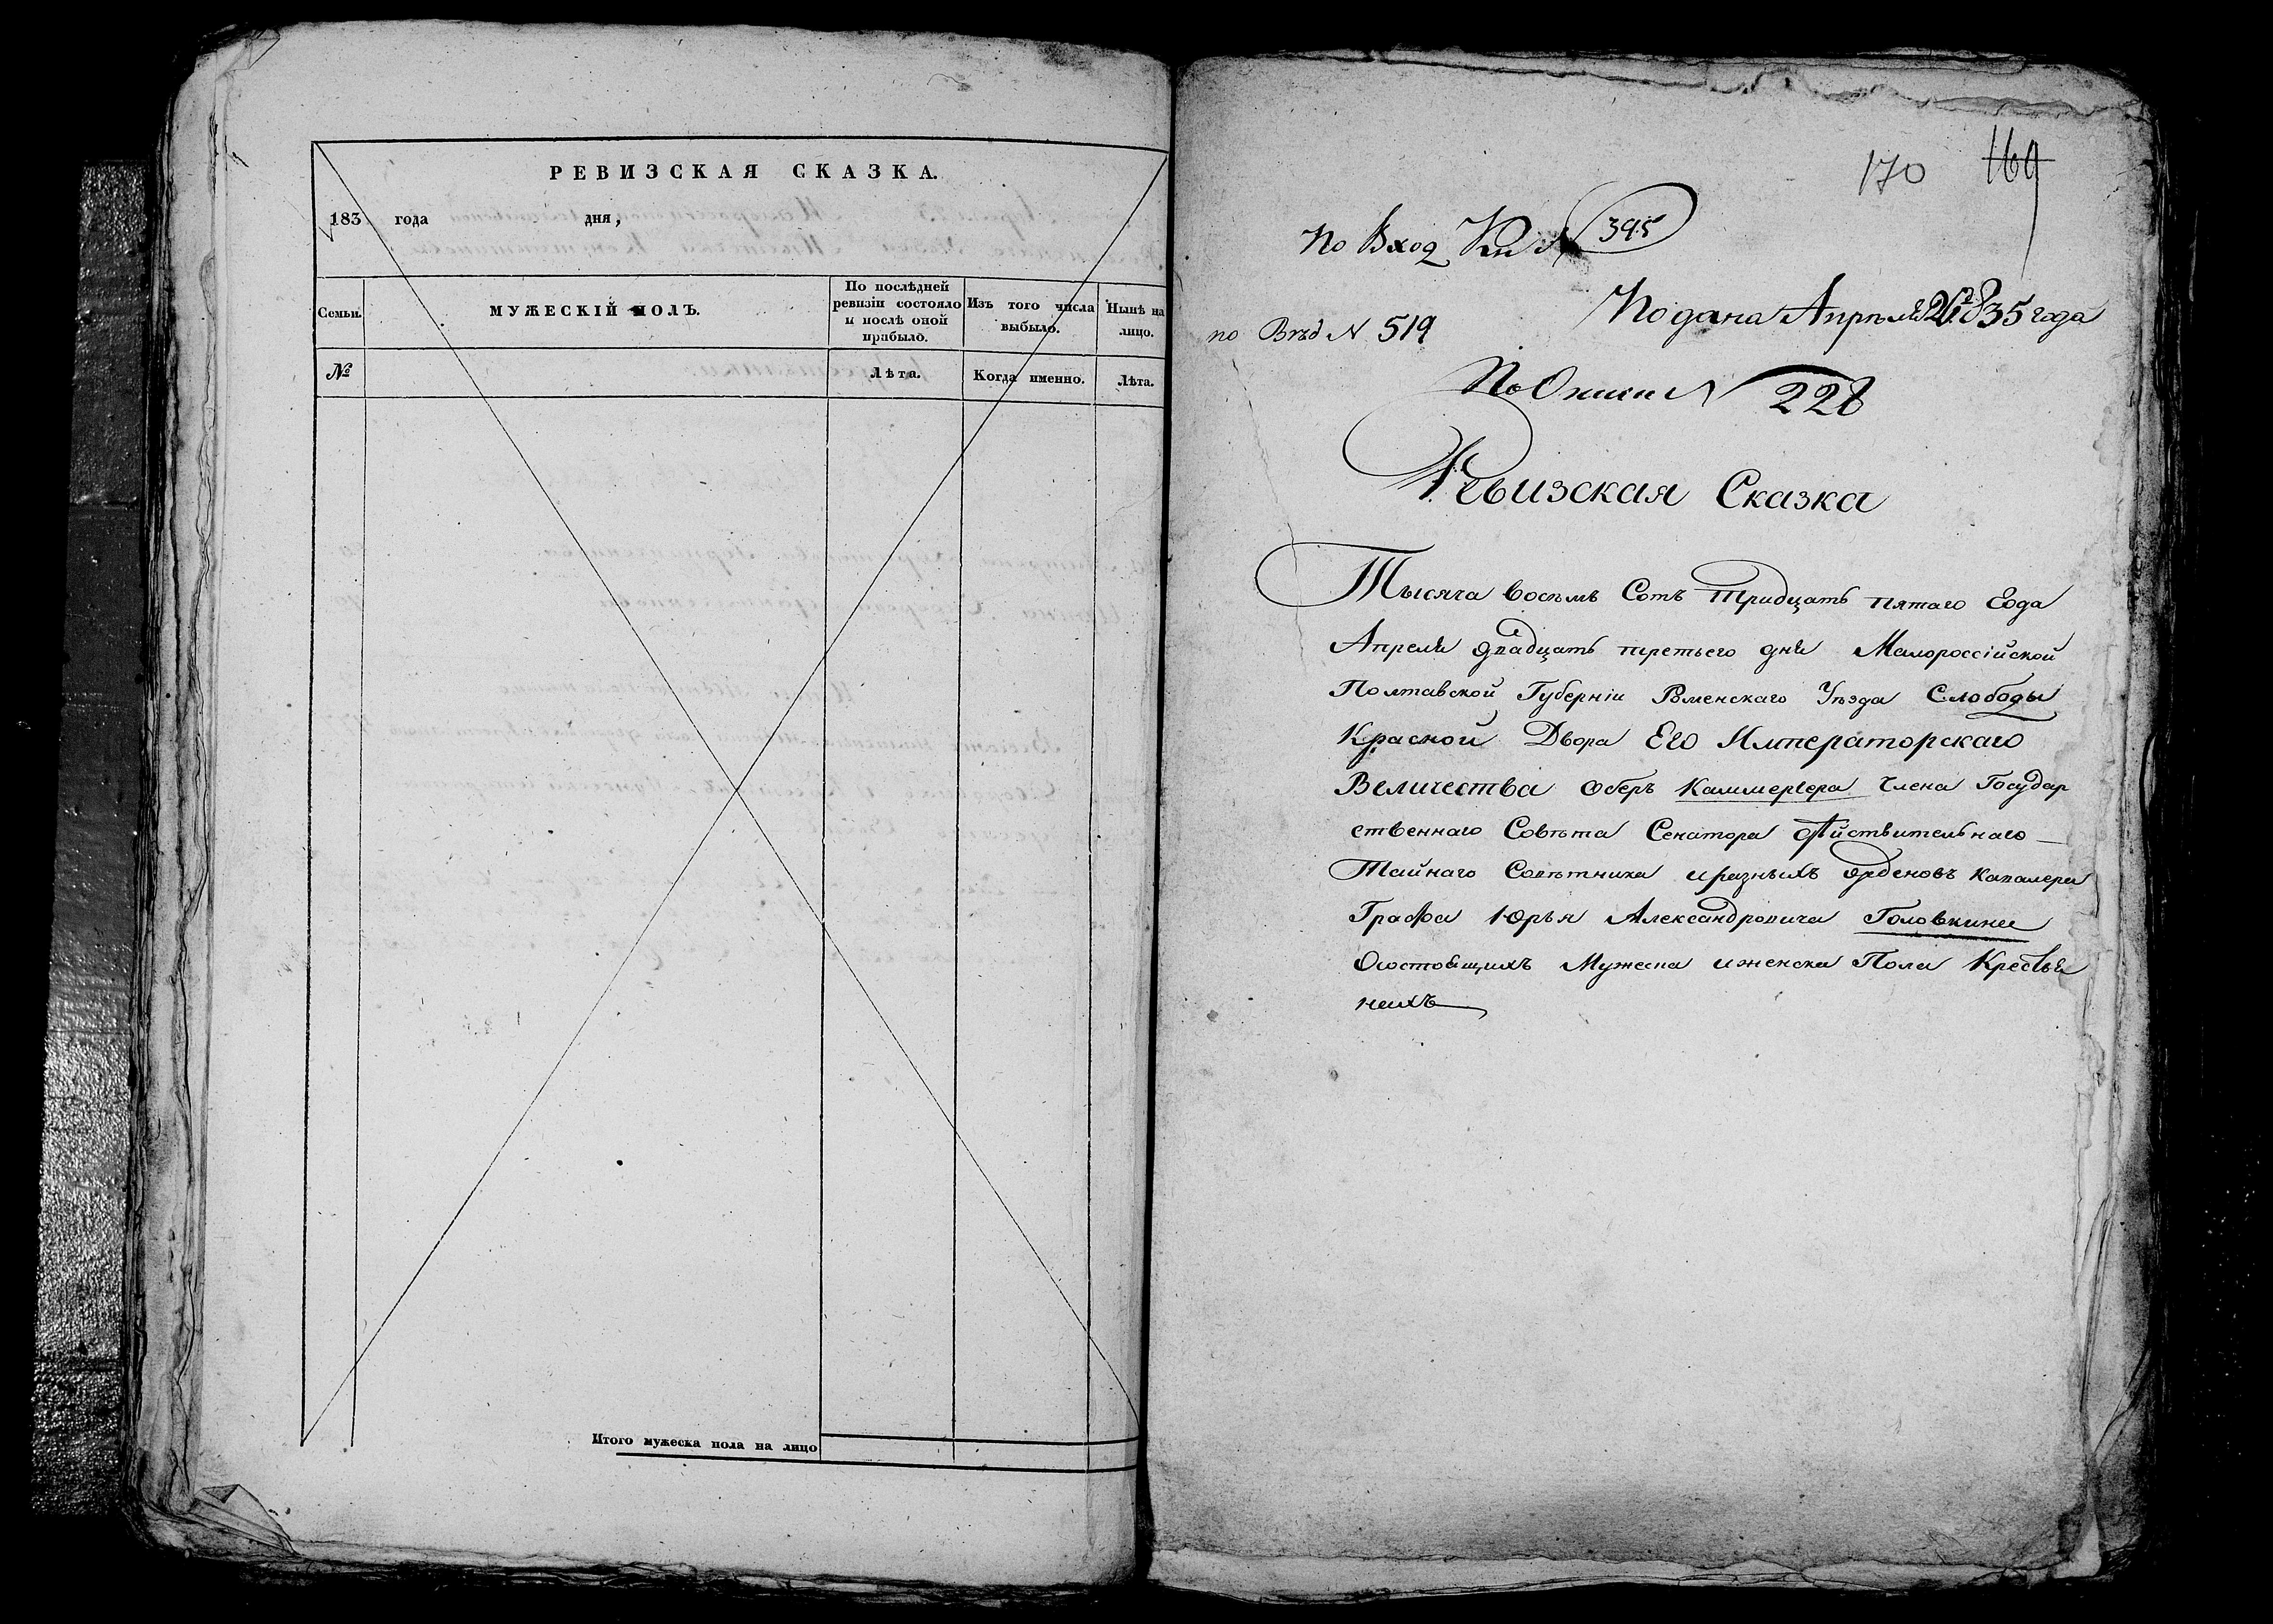 РЕВИЗСКАЯ СКАЗКА.
183 года дня,
Семьи. МУЖЕСКІЙ ПОЛЪ. По послѣдней ревизіи состояло и послѣ оной прибыло. Изъ того числа выбыло. Нынѣ на лицо.
№ Лѣта. Когда именно. Лѣта.
Итого мужеска пола на лицо
170 169
По Вход Кн № 395
Подана Апрѣля 26 835 года
по Вѣд N 519
По Описи N 228
Ревизская Сказка
Тысяча восемъ Сотъ Тридцать пятаго Года
Апреля двадцать третьего дня Малороссійской
Полтавской Губерніи Роменскаго Уѣзда Слободы
Красной Двора Его Императорскаго
Величества Оберъ Каммергера Члена Государ
ственнаго Совѣта Сенатора дѣйствительнаго
Тайнаго Совѣтника и разныхъ орденовъ Кавалера
Графа Юрья Александровича Головкина
О состоящихъ Мужеска и женска Пола Крестья
нехъ